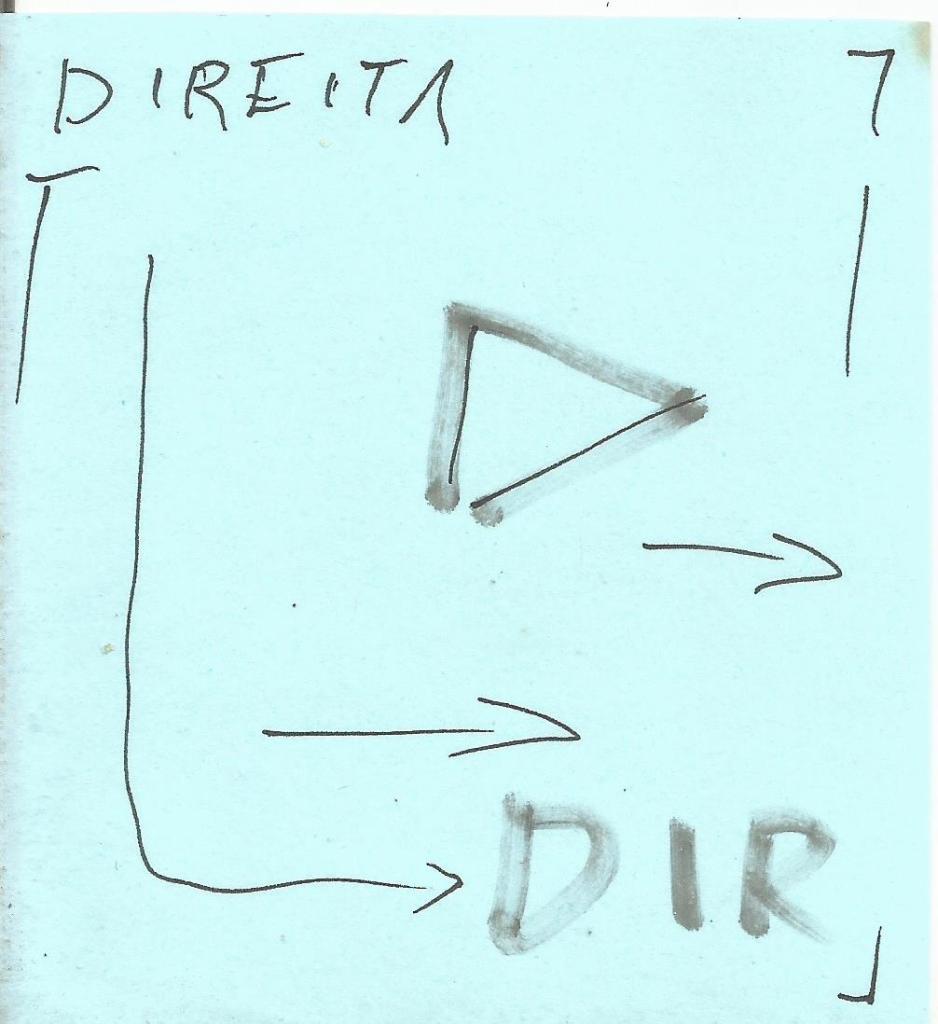 DIREITA
DIR